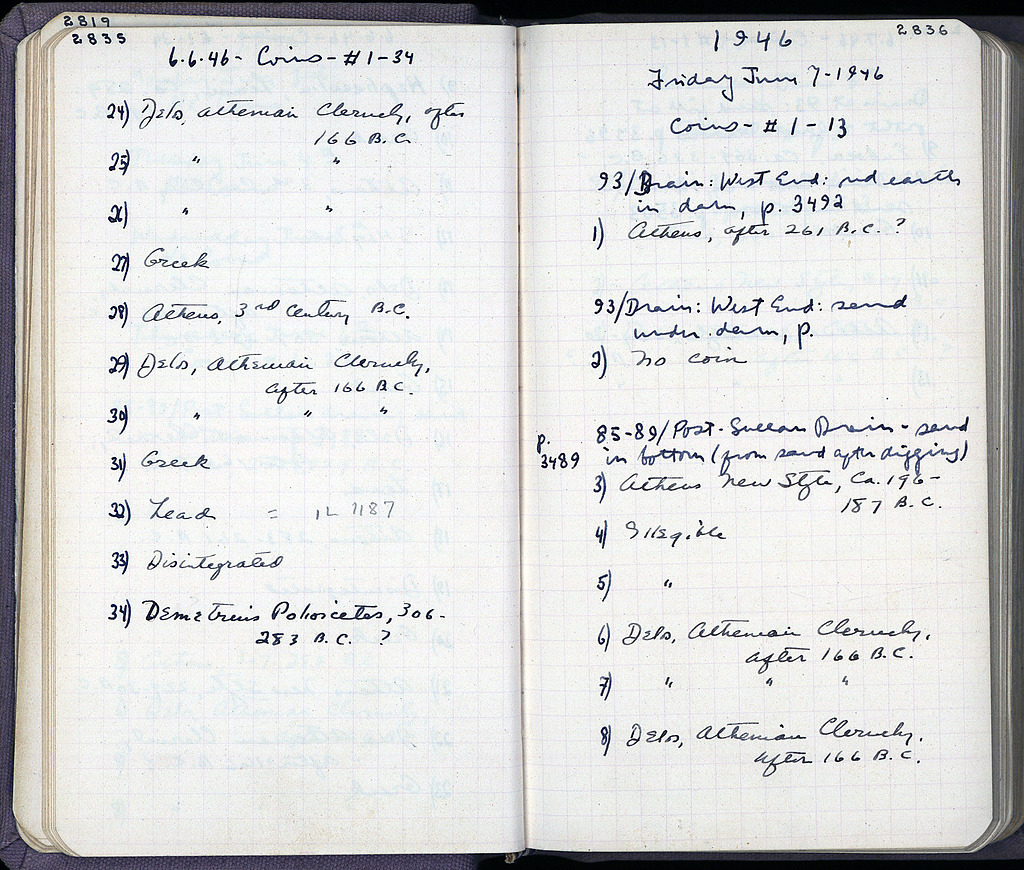 2819
2835
6.6.46 - Coins - #1-34
24) Delos, Athenian Cleruchy, after
166 B.C.
25) " "
26) " "
27) Greek
28) Athens, 3rd Century B.C.
29) Delos, Athenian Cleruchy,
after 166 B.C.
30) " " "
31) Greek
32) Lead = IL 1187
33) Disintegrated
34) Demetrius Poliorcetes, 306-
283 B.C. ?
2836
1946
Friday June 7-1946
Coins - #1-13
93/Drain: West End: red earth
in dam, p. 3492
1) Athens, after 261 B.C. ?
93/Drain: West End: sand
under dam, p.
2) No coin
p.
3489
85-89/Post-Sullan Drain - sand
in bottom (from sand after digging)
3) Athens New Style, Ca. 196-
187 B.C.
4) Illegible
5) "
6) Delos, Athenian Cleruchy,
after 166 B.C.
7) " " "
8) Delos, Athenian Cleruchy,
after 166 B.C.